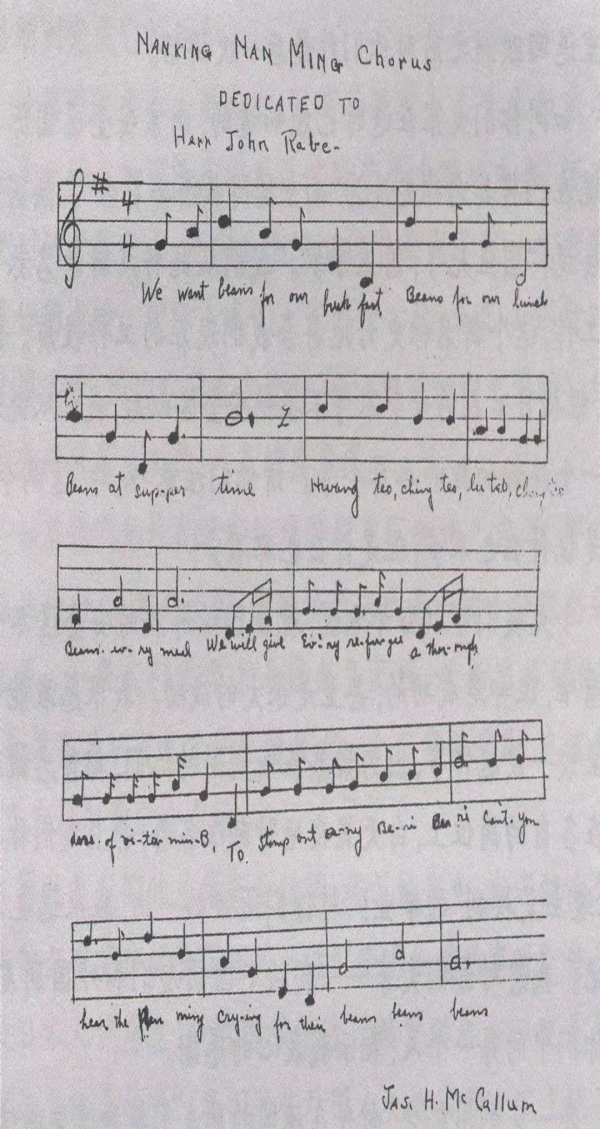 NANKING NAN MING Chorus
DEDICATED TO
Herr John Rabe-
4
4
We want beans for our break fast Beans for our lunch
Beans at sup-per time Hwang teo, ching teo, lu teo,
Beans. ev-ry meal We will give Ev'ry re-fu-gee a thor-ough
dose. of vi-ta-min-B, To. stamp out a-ny Be-ri Ber ri Can't. you
hear the Nan ming Cry-ing for their beans beans beans
JAS. H. McCallum